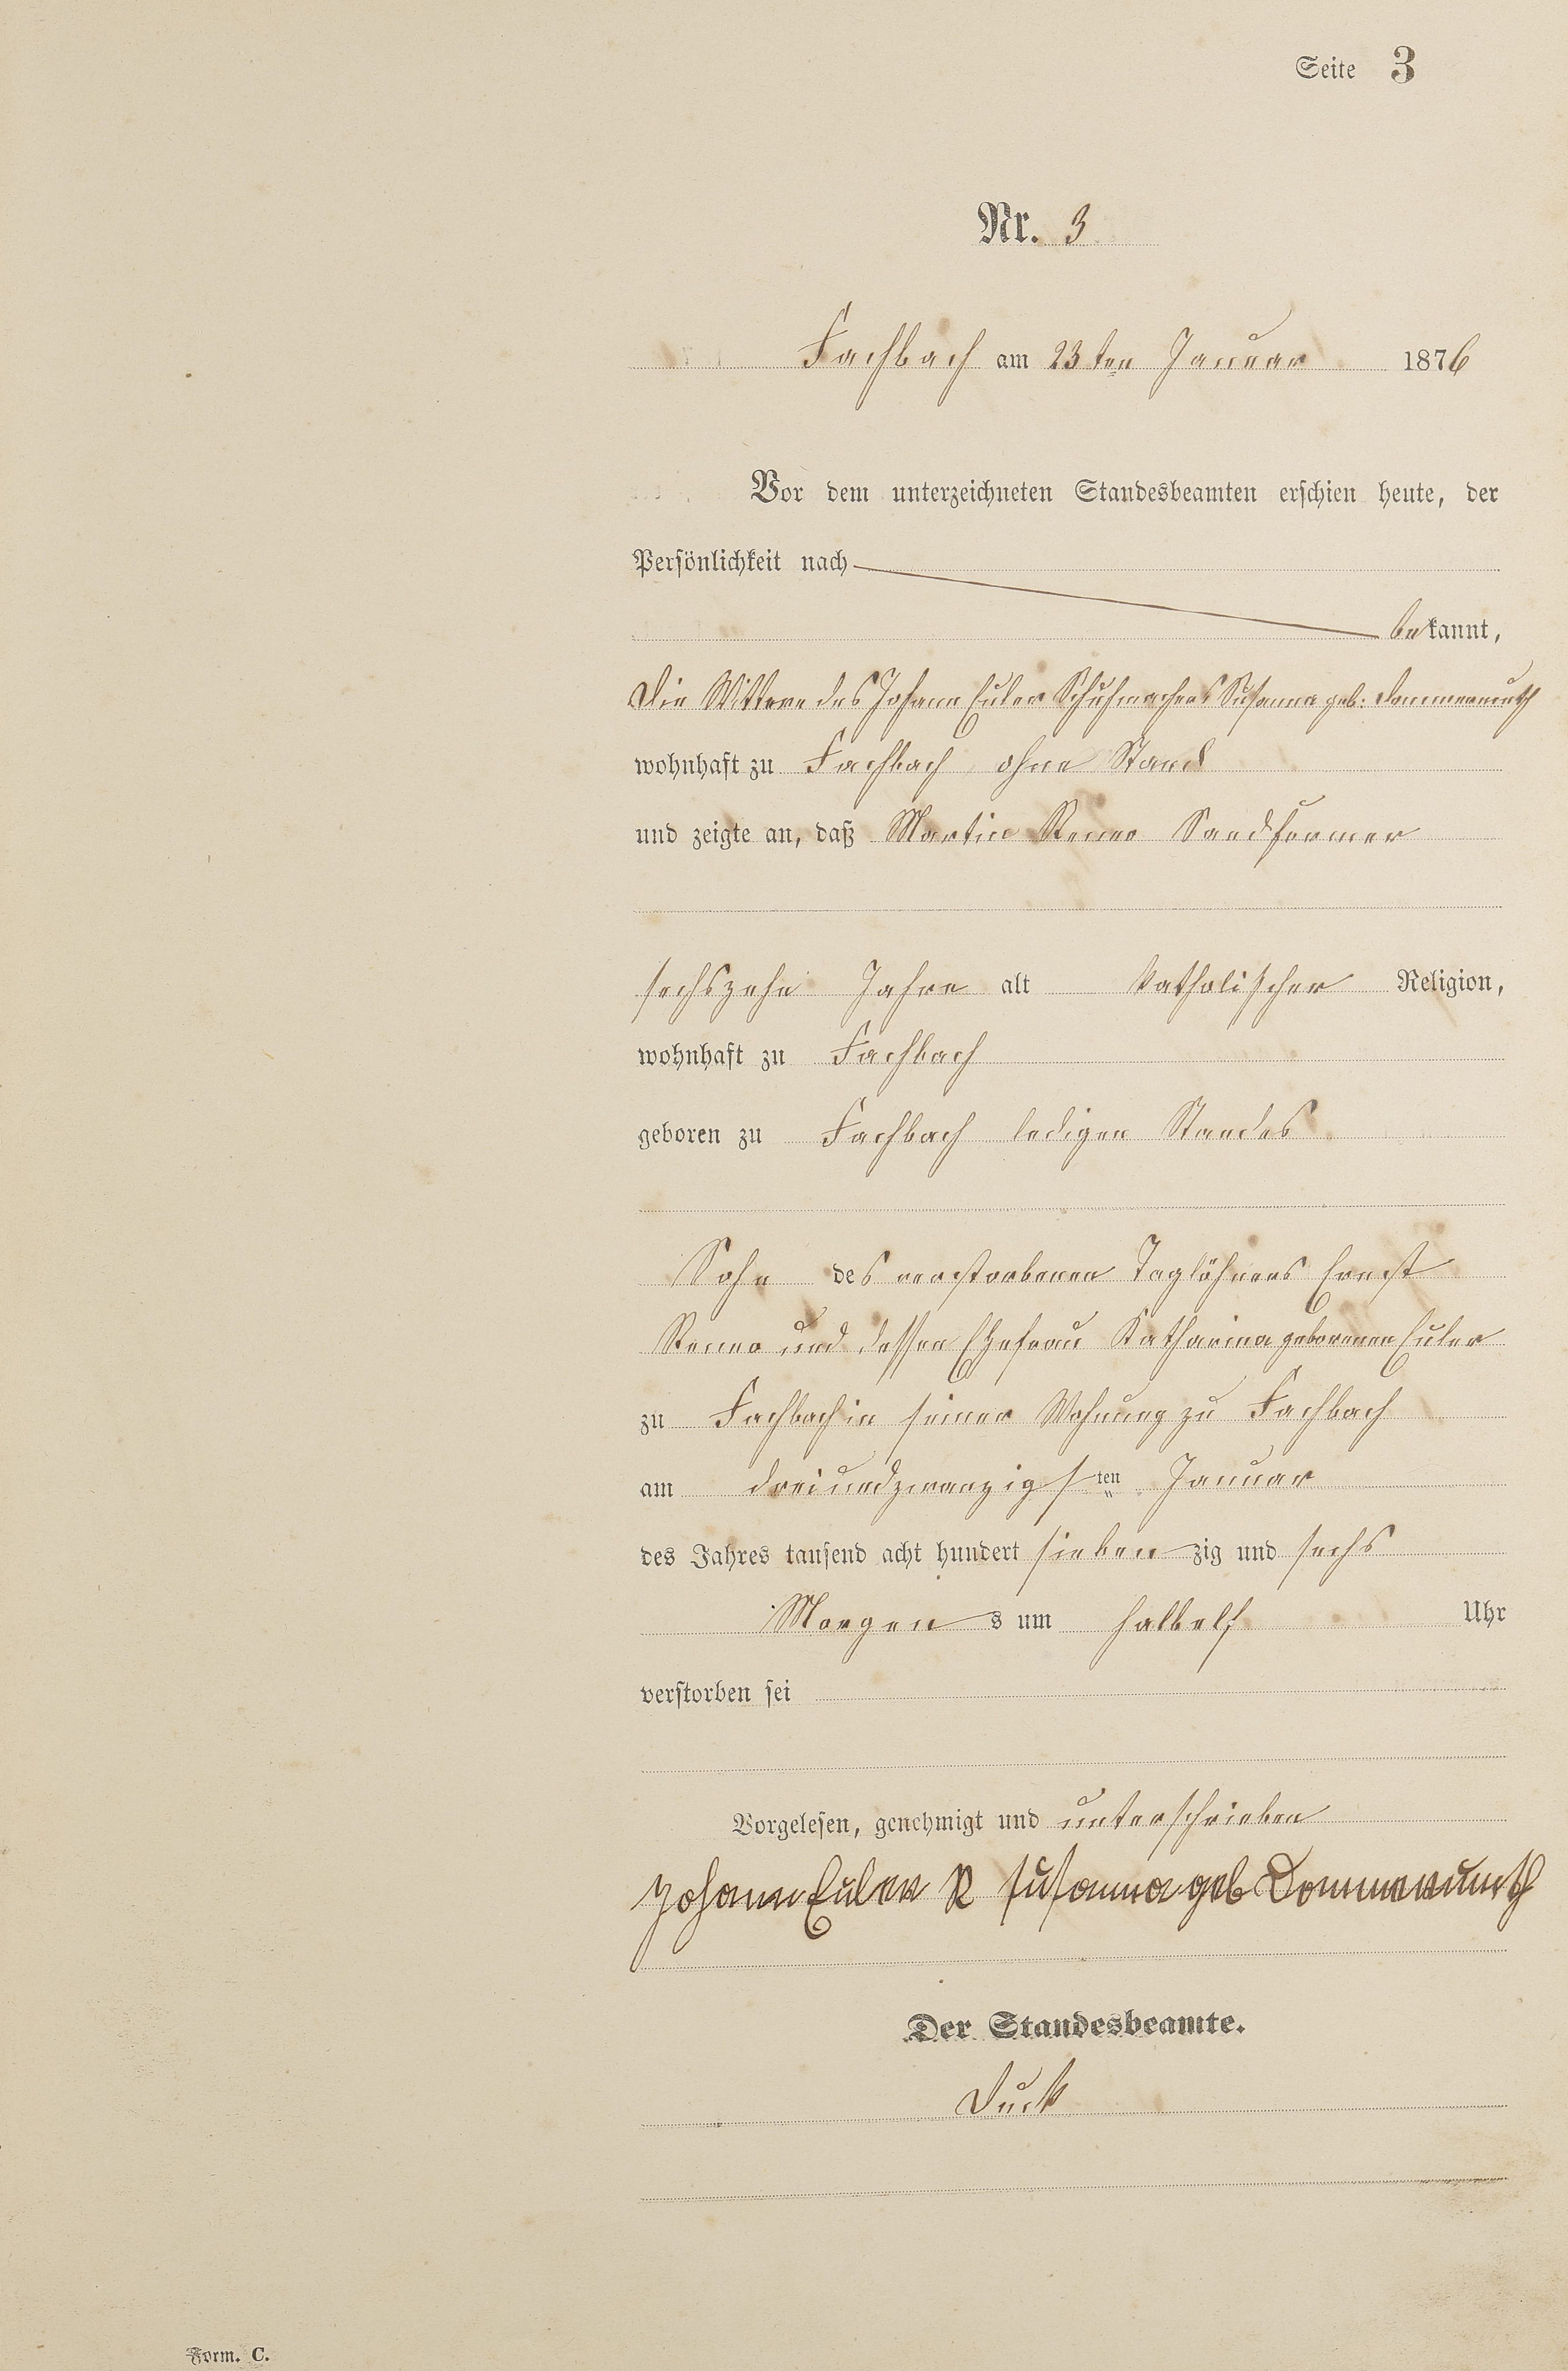 Seite 3
Nr. 3
Fachbach am 23ten Januar 1876
Vor dem unterzeichneten Standesbeamten erschien heute, der
Persönlichkeit nach
bekannt,
die Wittwe des Johann Euler Schuhmachers Susanna geb: Dommermuth
wohnhaft zu Fachbach ohne Stand
und zeigte an, daß Martin Sandformer
sechszehn Jahre alt katholischer Religion,
wohnhaft zu Fachbach
geboren zu Fachbach ledigen Standes
Sohn des verstorbenen Taglöhners Ernst
und dessen Ehefrau Katharina geborenen Euler
zu Fachbach in seiner Wohnung zu Fachbach
am dreiundzwanzigsten Januar
des Jahres tausend acht hundert siebenzig und sechs
Morgens um halbelf Uhr
verstorben sei
Vorgelesen, genehmigt und unterschrieben
Johann Euler Susanna geb Dommermuth
Der Standesbeamte.
Form. C.